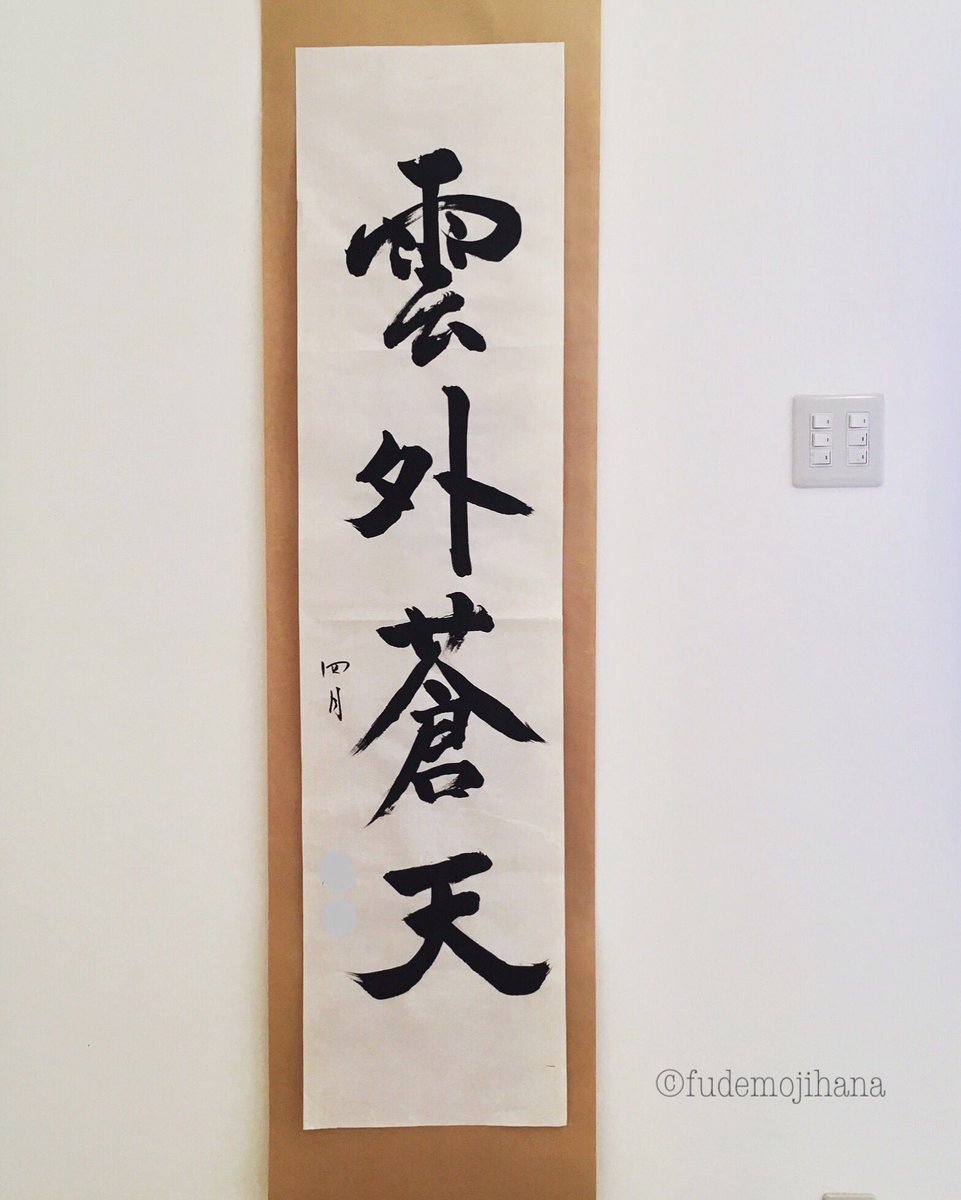 雲外蒼天
四月
©fudemojihana